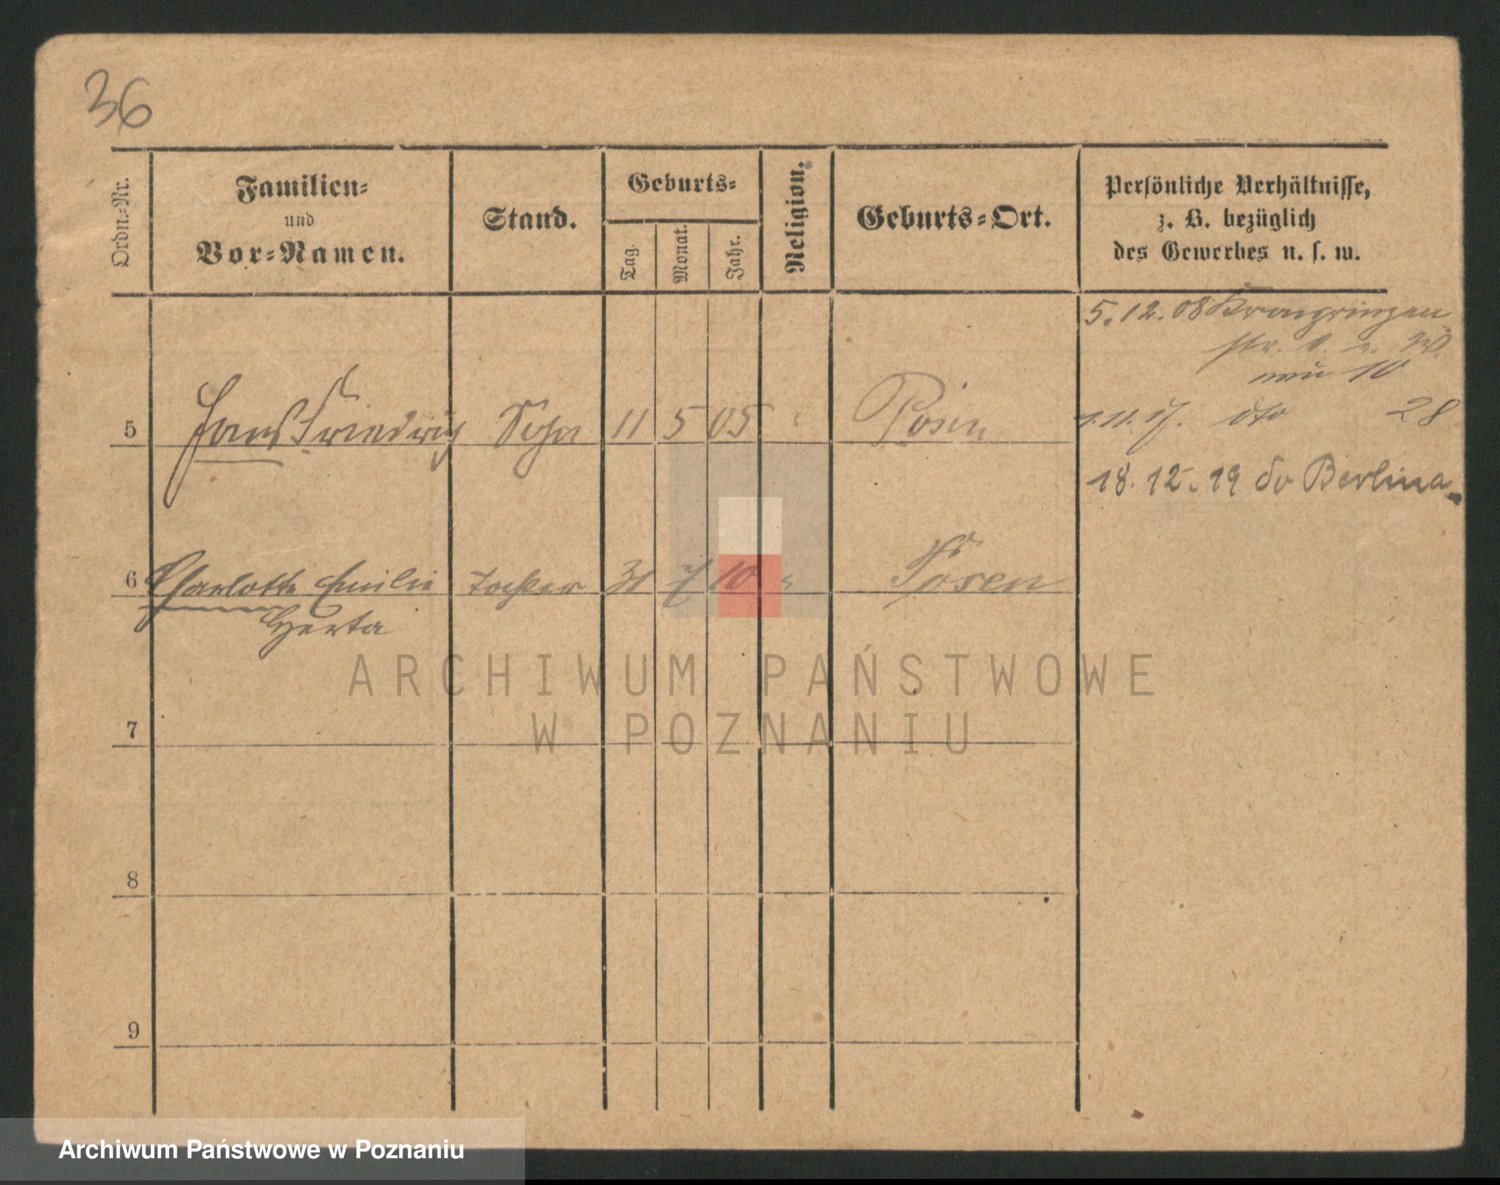 36
Ordn.-Nr.
Familien-
und
Vor-Namen.
Stand.
Geburts-
Tag.
Monat.
Jahr.
Religion.
Geburts-Ort.
Persönliche Verhältnisse,
z. B. bezüglich
des Gewerbes u. s. w.
5.12.08 Kronprinzen
str.
10
5 Hans Friedrich Sohn 11 5 05 Posen
1.11.17. dto 28
18.12.19 do Berlin
6 Charlotte Emilie Tochter 31 7 10 Posen
Herta
7
8
9
ARCHIWUM PAŃSTWOWE
W POZNANIU
Archiwum Państwowe w Poznaniu